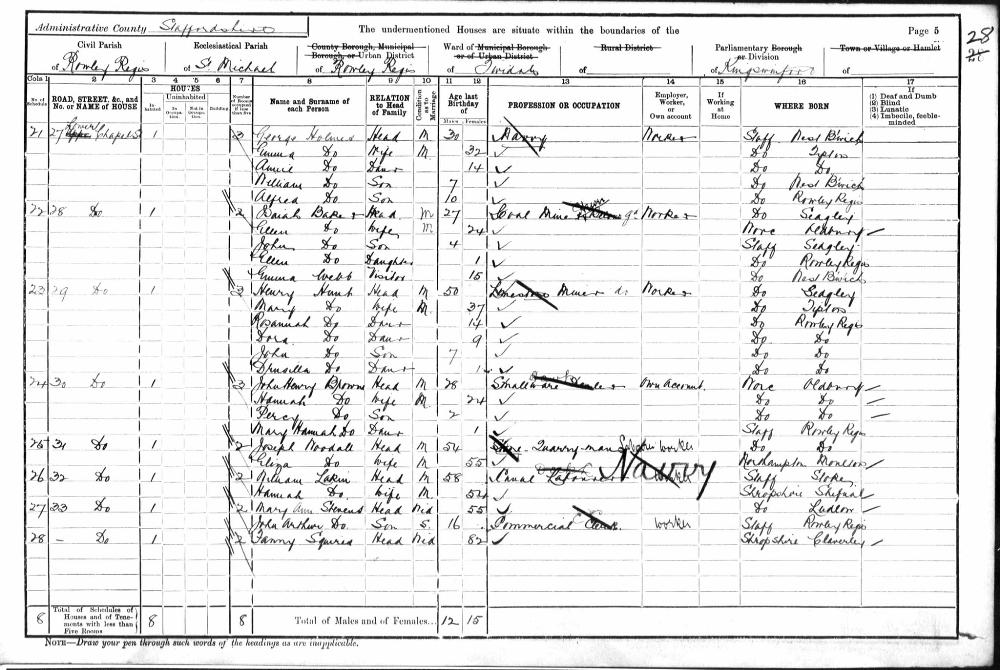 Administrative County Staffordshire
The undermentioned Houses are situate within the boundaries of the
Page 5
28
Civil Parish
Ecclesiastical Parish
County Borough, Municipal Borough or Urban District
Ward of Municipal Borough or of Urban District
Rural District
Parliamentary Borough or Division
Town or Village or Hamlet
of Rowley Regis
of St Michael
of Rowley Regis
of Tividale
of
of Kingswinford
of
Cols 1 2 3 4 5 6 7 8 9 10 11 12 13 14 15 16 17
No. of Schedule
ROAD, STREET, &c., and No. or NAME of HOUSE
HOUSES
Inhabited
Uninhabited
In Occupation.
Not in Occupation.
Building
Number of Rooms occupied if less than five
Name and Surname of each Person
RELATION to Head of Family
Condition as to Marriage
Age last Birthday of
Males Females
PROFESSION OR OCCUPATION
Employer, Worker, or Own account
If Working at Home
WHERE BORN
If
(1) Deaf and Dumb
(2) Blind
(3) Lunatic
(4) Imbecile, feeble-minded
21 27 Lower Chapel St 1 3 George Holmes Head M 30 Navvy Worker Staff West Bwich
Emma Do Wife M 32 Do Tipton
Annie Do Daur 14 Do Do
William Do Son 7 Do West Bwich
Alfred Do Son 10 Do Rowley Regis
22 28 Do 1 2 Isaiah Baker Head M 27 Coal Mine Worker Do Sedgley
Ellen Do Wife M 24 Worc Oldbury
John Do Son 4 Staff Sedgley
Ellen Do Daughter 1 Do Rowley Regis
Emma Webb Visitor 15 Do West Bwich
23 29 Do 1 3 Henry Hunt Head M 50 Limestone Miner do Worker Do Sedgley
Mary Do Wife M 37 Do Tipton
Rosannah Do Daur 14 Do Rowley Regis
Dora Do Daur 9 Do Do
John Do Son 7 Do Do
Drusilla Do Daur 1 Do Do
24 30 Do 1 3 John Henry Browne Head M 28 Smallware Dealer Own Account. Worc Oldbury
Hannah Do Wife M 24 Do Do
Percy Do Son 2 Do Do
Mary Hannah Do Daur 1 Staff Rowley Regis
25 31 Do 1 2 Joseph Woodall Head M 54 Stone Quarry-man Labourer worker Do Do
Eliza Do Wife M 55 Northampton Moulton
26 32 Do 1 2 William Lakin Head M 58 Canal Labourer Navvy worker Staff Stoke
Hannah Do. Wife M 54 Shropshire Shifnal
27 33 Do 1 2 Mary Ann Stevens Head Wid 55 Do Ludlow
John Arthur Do. Son S. 16 Commercial Clerk worker Staff Rowley Regis
28 – Do 1 2 Fanny Squires Head Wid 82 Shropshire Claverley
8 Total of Schedules of Houses and of Tenements with less than Five Rooms 8 8 Total of Males and of Females... 12 15
NOTE—Draw your pen through such words of the headings as are inapplicable.